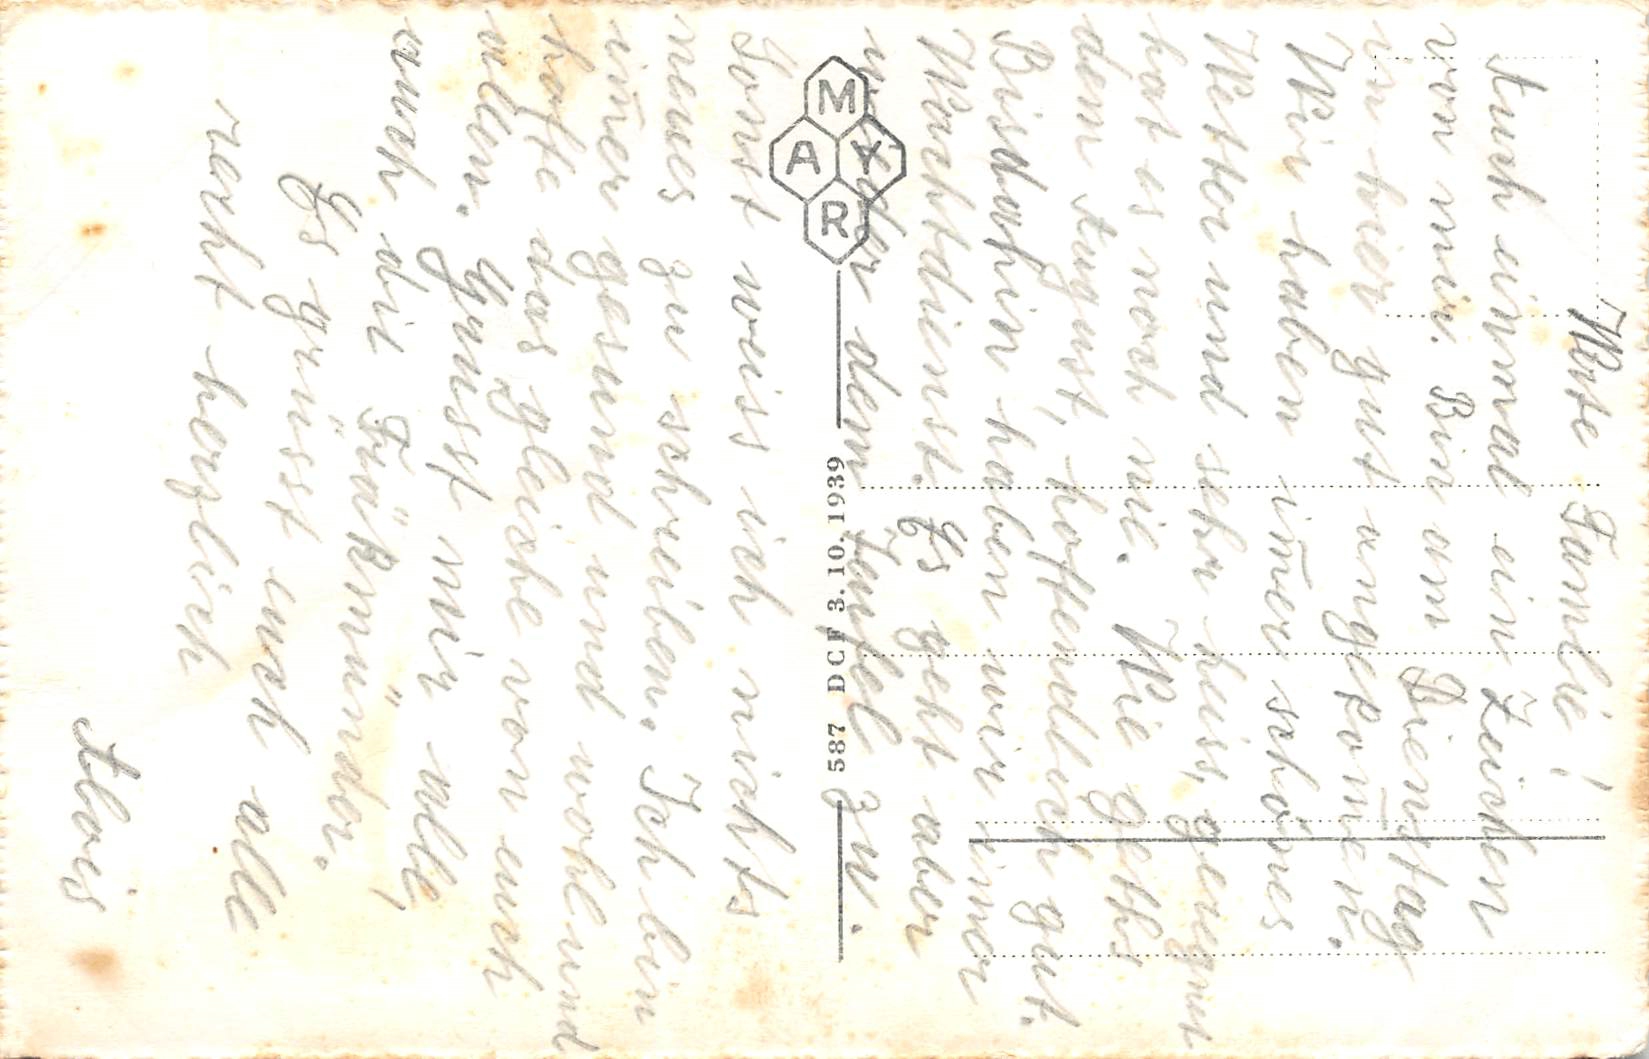 Werte Familie!
Auch einmal ein Zeichen
von mir. Bin am Dienstag
hier gut angekom̄en.
Wir haben im̄er schönes
Wetter und sehr heiss, geregnet
hat es noch nie. Wie gehts
dem August, hoffendlich gut.
Bisdahin haben wir im̄er
Wachtdienst. Es geht aber
wider dem Teufel zu.
Sonst weiss ich nichts
neues zu schreiben. Ich bin
im̄er gesund und wohl und
hoffe das gleiche von euch
allen. Grüsst mir alle,
auch die
Es grüsst euch alle
recht herzlich
Alois
MAYR
587 DCF 3. 10. 1939